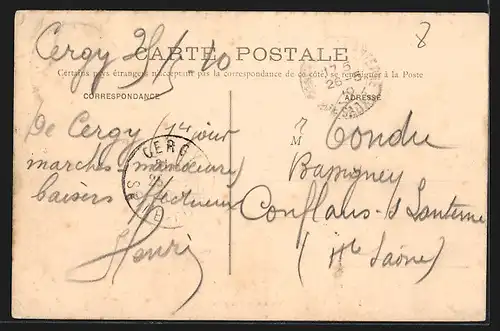 Cergy 25/5/10
8
CARTE POSTALE
Certains pays étrangers n'acceptant pas la correspondance de ce côté, se renseigner à la Poste
CORRESPONDANCE
ADRESSE
De Cergy (1er jour
marches manœuvres)
baisers affectueux
Henri
CERG
M
Tondu
Bassigney
Conflans-s Lanterne
(Hte Saône)